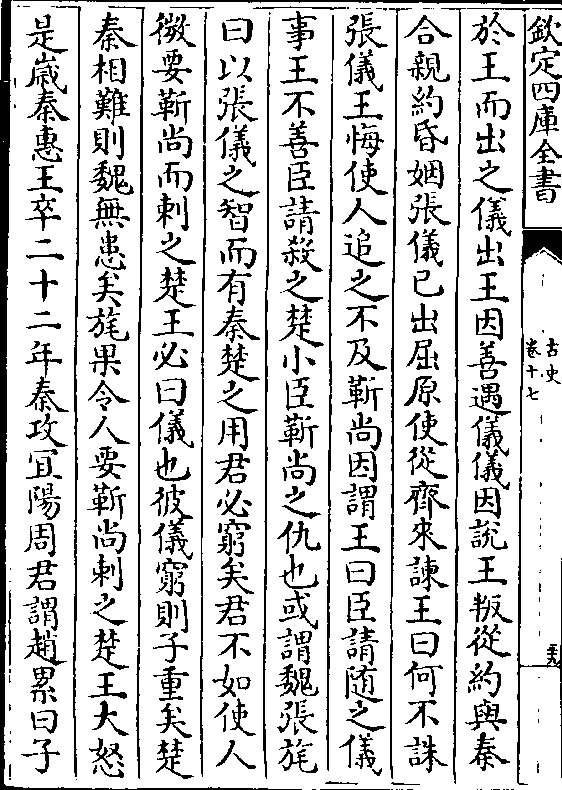 欽定四庫全書
古史
卷十七
於王而出之儀出王因善遇儀儀因說王叛從約與秦
合親約昏姻張儀已出屈原使從齊來諫王曰何不誅
張儀王悔使人追之不及靳尚因謂王曰臣請随之儀
事王不善臣請殺之楚小臣靳尚之仇也或謂魏張旄
曰以張儀之智而有秦楚之用君必窮矣君不如使人
微要靳尚而刺之楚王必曰儀也彼儀窮則子重矣楚
秦相難則魏無患矣旄果令人要靳尚刺之楚王大怒
是嵗秦惠王卒二十二年秦攻冝陽周君謂趙累曰子